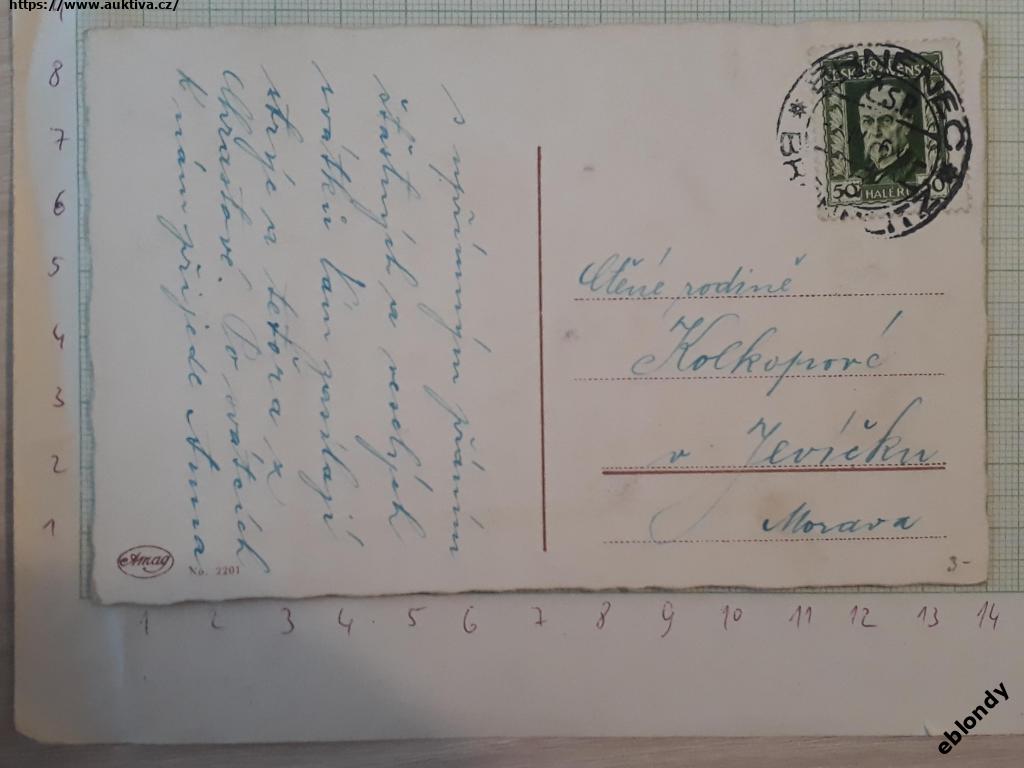 https://www.auktiva.cz/
s upřímným přáním
šťastných a veselých
svátků Vám zasílají
strýc a tetka z
Chrastové. Po svátcích
k nám přijede Anna
ČESKOSLOVENSKO
50
HALÉŘŮ
BRNĚNEC
Ctěné rodině
Kolkopové
v Jevíčku
Morava
Amag
No. 2201
3-
8
7
6
5
4
3
2
1
1 2 3 4 5 6 7 8 9 10 11 12 13 14
eblondy